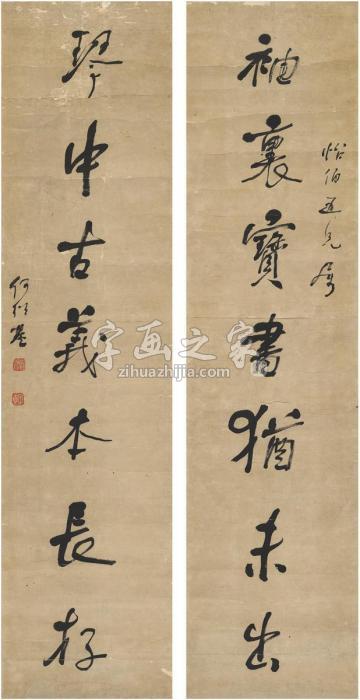 袖裏寶書猶未出
怡伯五兄屬
琴中古義本長存
何維樸
字画之家
zihuazhijia.com